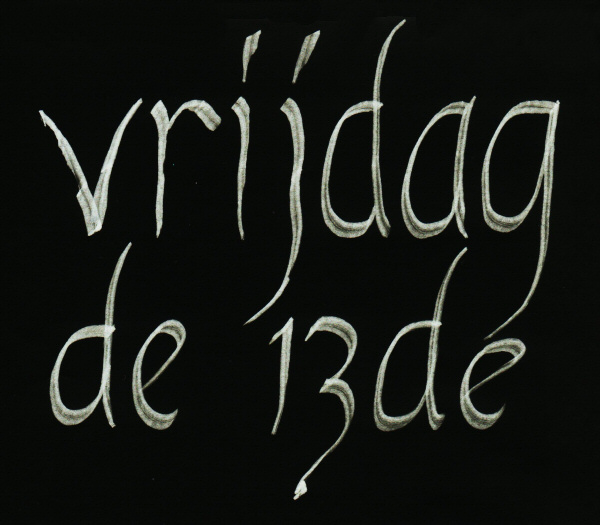 vrijdag
de 13de